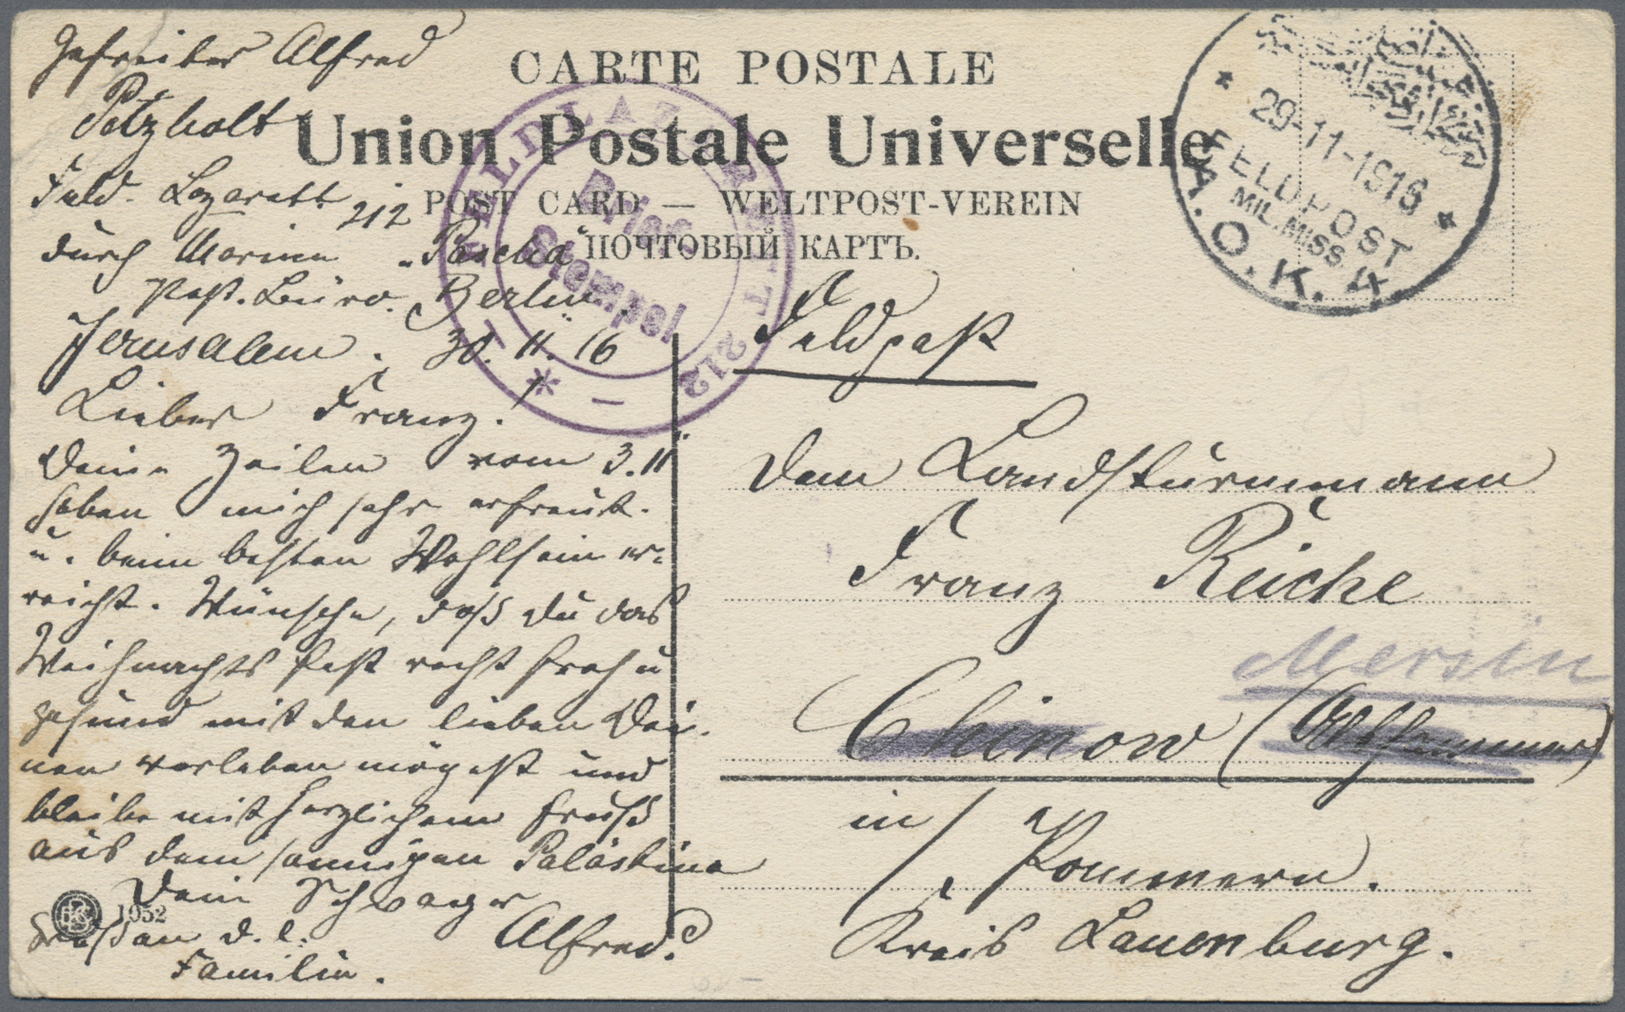 Gefreiter Alfred
Petzholt
Feld-Lazarett 212
durch Marine "Pascha"
Post-Büro. Berlin.
Jerusalem. 30.11.16
Lieber Franz!
Deine Zeilen vom 3.11
haben mich sehr erfreut.
u. beim besten Wohlsein er-
reicht. Wünsche, daß Du das
Weihnachtsfest recht froh u
gesund mit den lieben Dei-
nen verleben mögest und
bleibe mit herzlichem Gruß
aus dem sonnigen Palästina
Dein Schwager
Alfred.
Gruß an d. l.
Familie.
1952
CARTE POSTALE
Union Postale Universelle
POST CARD — WELTPOST-VEREIN
ПОЧТОВЫЙ КАРТЪ.
FELDLAZARETT 212
Brief
Stempel
29-11-1916
FELDPOST
MIL. MISS.
A.O.K. 4
Feldpost
Dem Landsturmmann
Franz Reiche
Mersin
Chinow (
in Pommern.
Kreis Lauenburg.